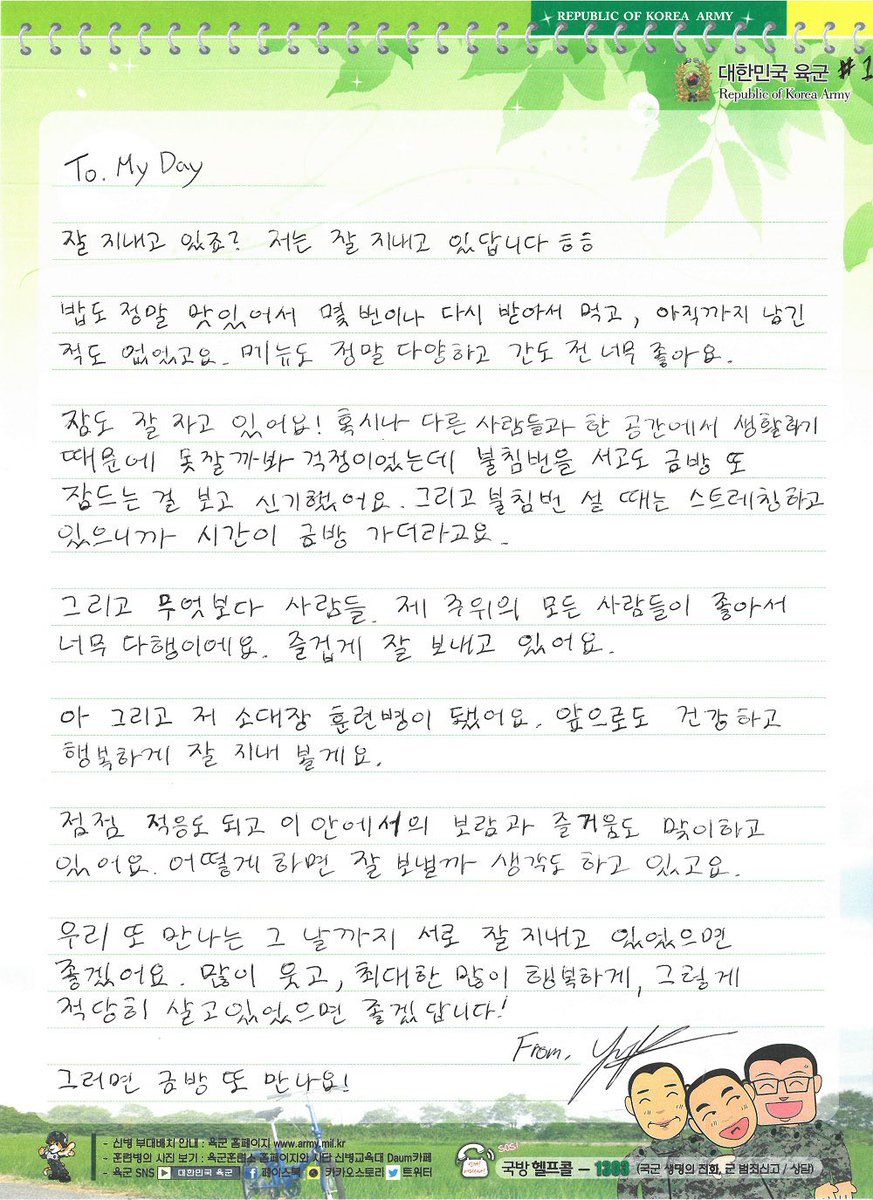 REPUBLIC OF KOREA ARMY
대한민국 육군 #1
Republic of Korea Army
To. My Day
잘 지내고 있죠? 저는 잘 지내고 있답니다 ㅎㅎ
밥도 정말 맛있어서 몇 번이나 다시 받아서 먹고, 아직까지 남긴
적도 없었고요. 메뉴도 정말 다양하고 간도 전 너무 좋아요.
잠도 잘 자고 있어요! 혹시나 다른 사람들과 한 공간에서 생활하기
때문에 못잘까봐 걱정이었는데 불침번을 서고도 금방 또
잠드는 걸 보고 신기했어요. 그리고 불침번 설 때는 스트레칭하고
있으니까 시간이 금방 가더라고요.
그리고 무엇보다 사람들. 제 주위의 모든 사람들이 좋아서
너무 다행이에요. 즐겁게 잘 보내고 있어요.
아 그리고 저 소대장 훈련병이 됐어요. 앞으로도 건강하고
행복하게 잘 지내 볼게요.
점점 적응도 되고 이 안에서의 보람과 즐거움도 맞이하고
있어요. 어떻게 하면 잘 보낼까 생각도 하고 있고요.
우리 또 만나는 그 날까지 서로 잘 지내고 있었으면
좋겠어요. 많이 웃고, 최대한 많이 행복하게, 그렇게
적당히 살고있었으면 좋겠답니다!
From,
그러면 금방 또 만나요!
- 신병 부대배치 안내 : 육군 홈페이지 www.army.mil.kr
- 훈련병의 사진 보기 : 육군훈련소 홈페이지와 사단 신병교육대 Daum카페
- 육군 SNS 대한민국 육군 페이스북 카카오스토리 트위터
SOS!
국방 헬프콜 - 1303 (국군 생명의 전화, 군 범죄신고 / 상담)